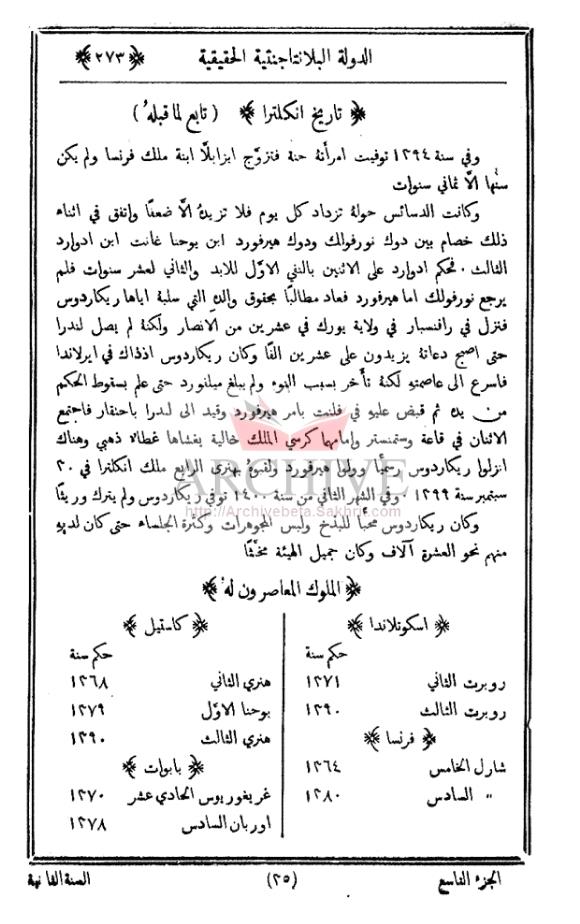 الدولة البلانتاجنتية الحقيقية ﴿٢٧٣﴾
﴿ تاريخ انكلترا ﴾ ( تابع لما قبلهُ )
وفي سنة ١٣٩٤ توفيت امرأتهُ حنة فتزوّج ايزابلّا ابنة ملك فرنسا ولم يكن
سنّها الّا ثماني سنوات
وكانت الدسائس حولهُ تزداد كل يوم فلا تزيدهُ الّا ضعفًا واتفق في اثناء
ذلك خصام بين دوك نورفولك ودوك هيرفورد ابن يوحنا غانت ابن ادوارد
الثالث . فحكم ادوارد على الاثنين بالنفي الاوّل للابد والثاني لعشر سنوات فلم
يرجع نورفولك اما هيرفورد فعاد مطالبًا بحقوق والدهِ التي سلبهُ اياها ريكاردوس
فنزل في رافنسبار في ولاية يورك في عشرين من الانصار ولكنهُ لم يصل لندرا
حتى اصبح دعاتهُ يزيدون على عشرين الفًا وكان ريكاردوس اذذاك في ايرلاندا
فاسرع الى عاصمتهِ لكنهُ تأخر بسبب النوء ولم يبلغ ميلنورد حتى علم بسقوط الحكم
من يدهِ ثم قبض عليهِ في فلنت بامر هيرفورد وقيد الى لندرا باحتقار فاجتمع
الاثنان في قاعة وستمنستر وامامهما كرسي الملك خالية يغشاها غطاء ذهبي وهناك
انزلوا ريكاردوس رسميًّا وولوا هيرفورد ولقبوهُ بهنري الرابع ملك انكلترا في ٣٠
سبتمبر سنة ١٣٩٩ . وفي الشهر الثاني من سنة ١٤٠٠ توفي ريكاردوس ولم يترك وريثًا
وكان ريكاردوس محبًّا للبذخ ولبس المجوهرات وكثرة الجلساء حتى كان لديهِ
منهم نحو العشرة آلاف وكان جميل الهيئة مخنّثًا
﴿ الملوك المعاصرون لهُ ﴾
﴿ اسكوتلاندا ﴾
حكم سنة
روبرت الثاني ١٣٧١
روبرت الثالث ١٣٩٠
﴿ فرنسا ﴾
شارل الخامس ١٣٦٤
" السادس ١٣٨٠
﴿ كاستيل ﴾
حكم سنة
هنري الثاني ١٣٦٨
يوحنا الاوّل ١٣٧٩
هنري الثالث ١٣٩٠
﴿ بابوات ﴾
غريغوريوس الحادي عشر ١٣٧٠
اوربان السادس ١٣٧٨
الجزء التاسع (٣٥) السنة الثانية
ARCHIVE
http://Archivebeta.Sakhrit.com